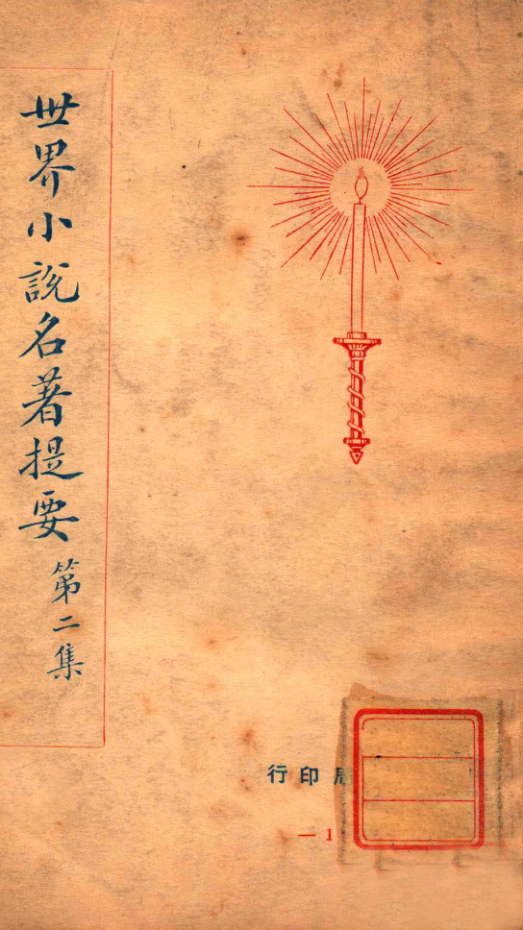 世界小說名著提要
第二集
印行
—1